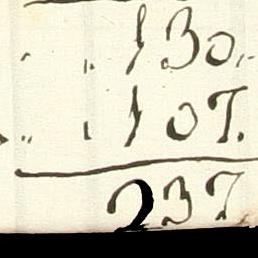 130.
107.
237